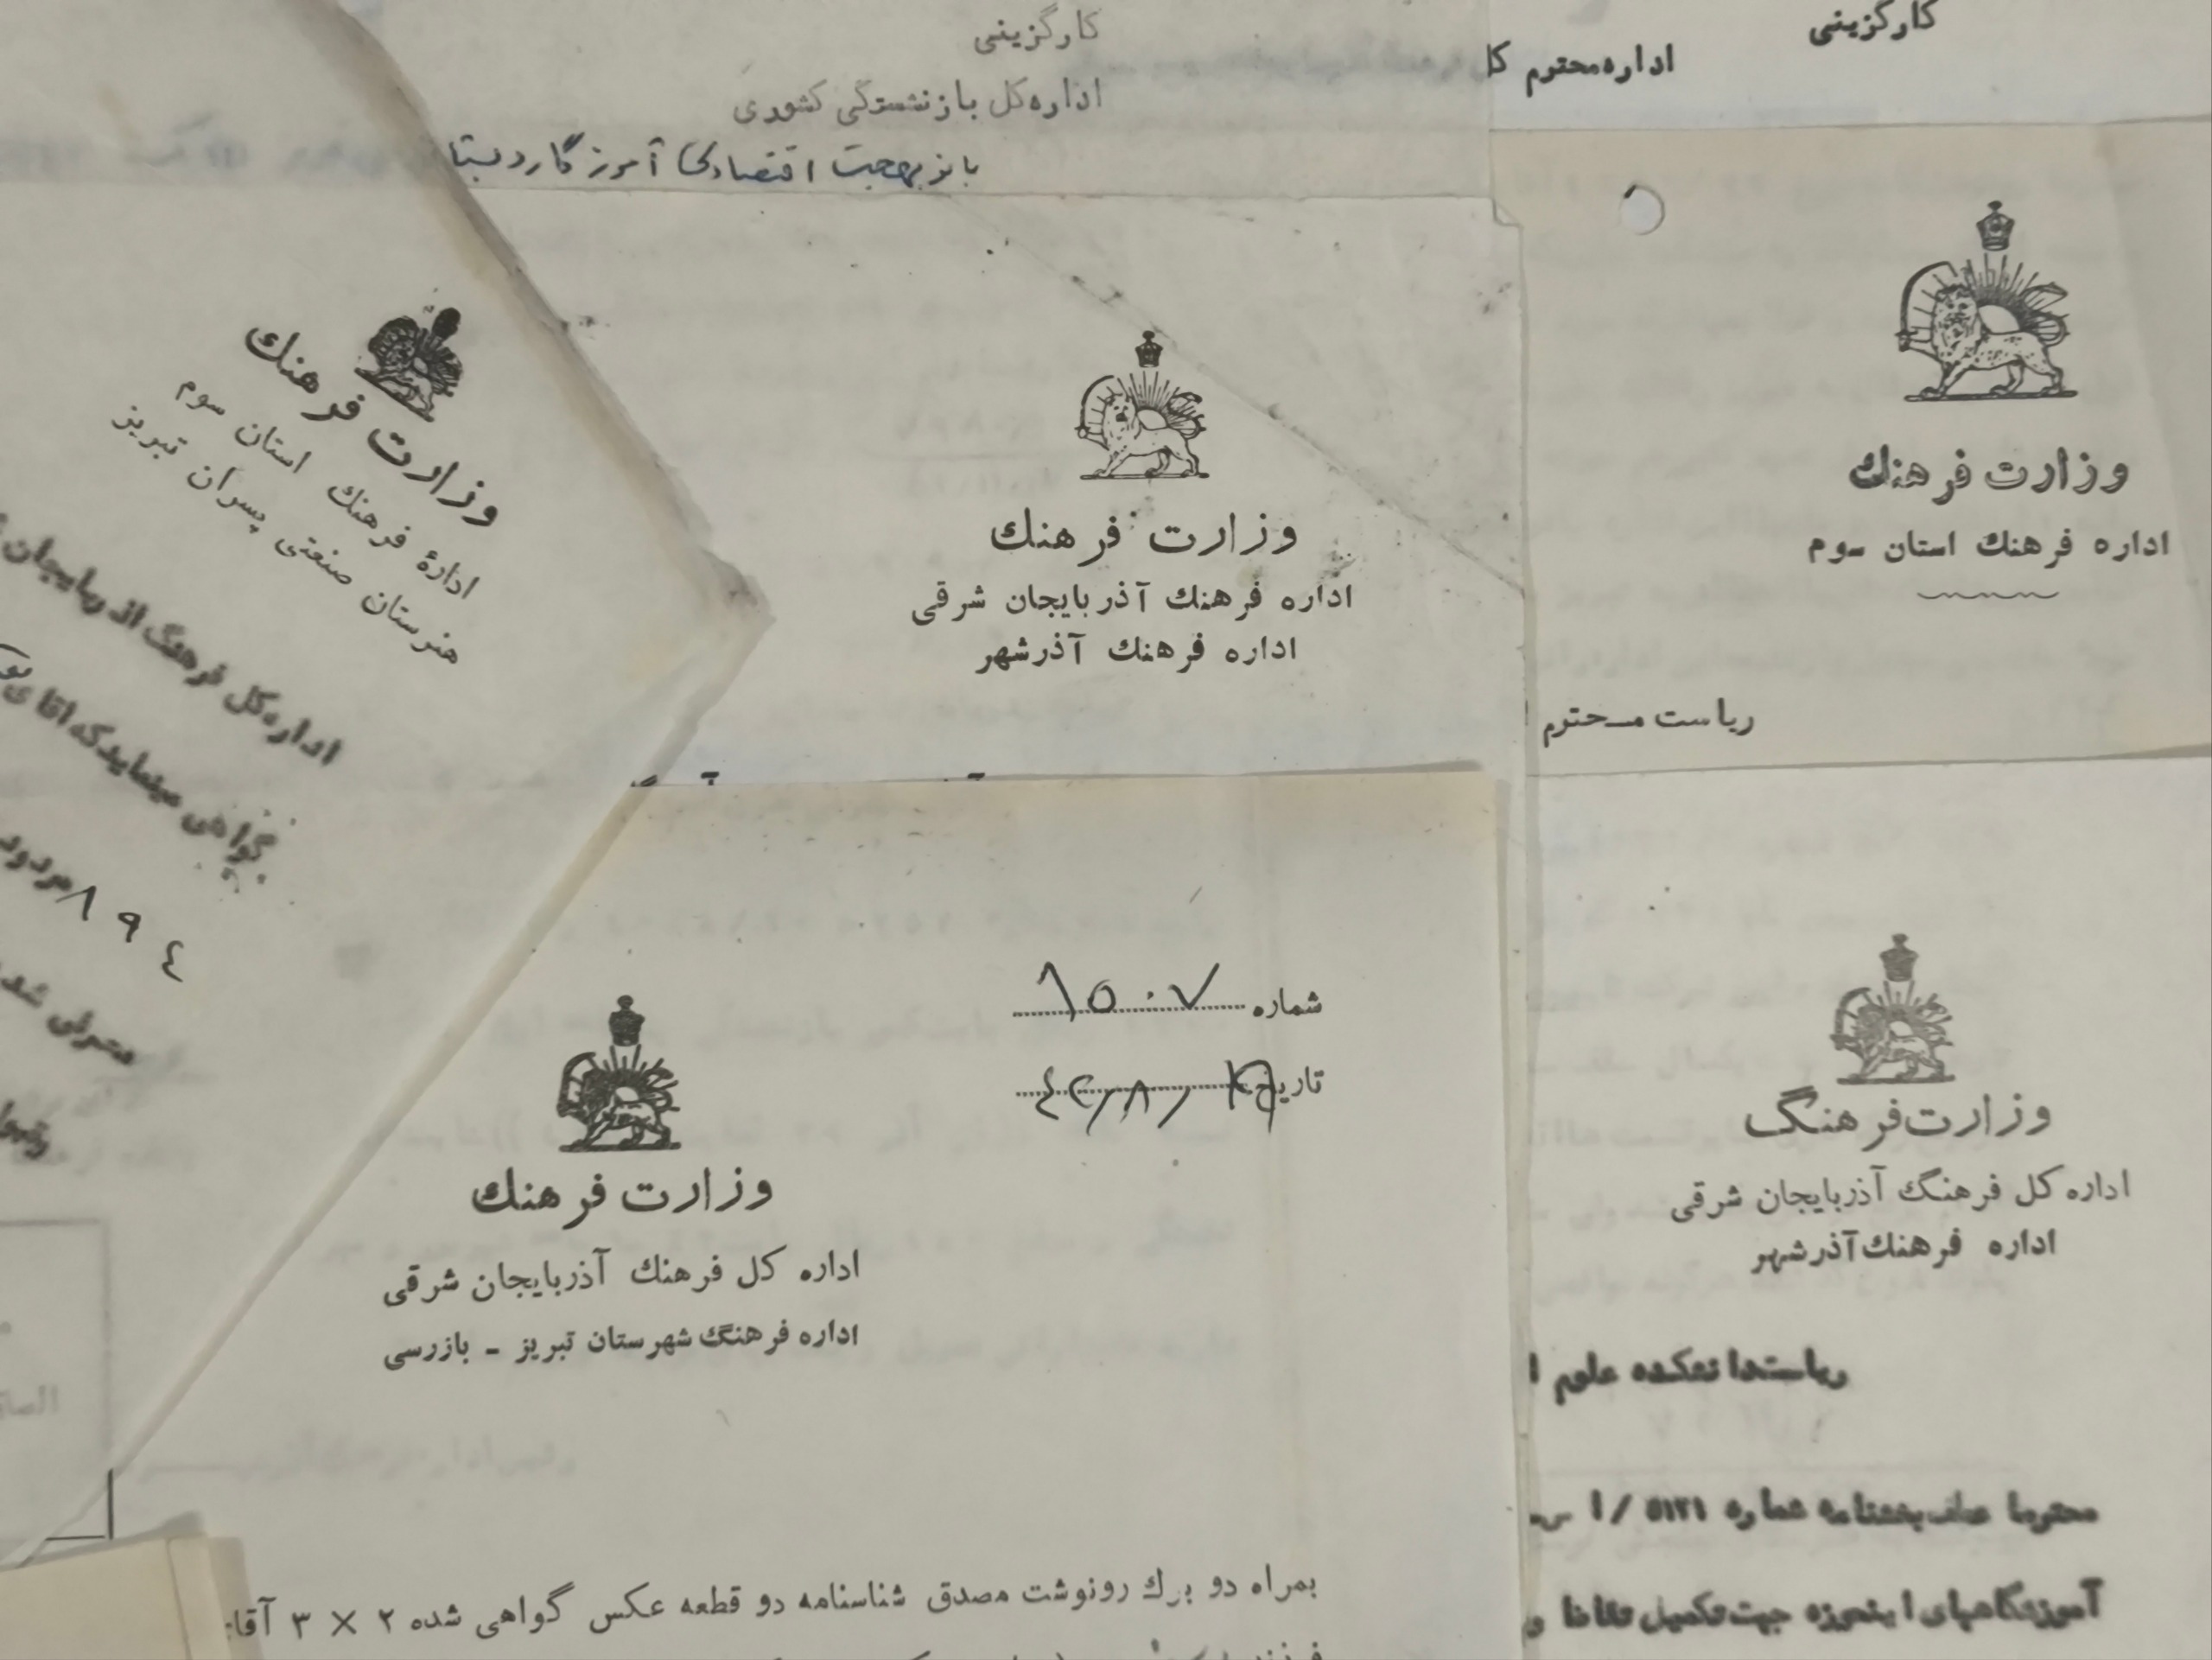 کارگزینی
اداره کل بازنشستگی کشوری
بانو بهجت اقتصادی آموزگار دبستا
کارگزینی
اداره محترم کا
وزارت فرهنك
ادارهٔ فرهنك استان سوم
هنرستان صنعتی پسران تبریز
اداره کل فرهنگ اذربایجان
گواهی مینماید که اقای
۸۹٤ مردود
معرفی شد
وزارت فرهنك
اداره فرهنك آذربایجان شرقی
اداره فرهنك آذرشهر
وزارت فرهنك
اداره فرهنك استان سوم
ریاست محترم
شماره ۸۵۰۷
تاریخ
وزارت فرهنك
اداره کل فرهنك آذربایجان شرقی
اداره فرهنگ شهرستان تبریز - بازرسی
بمراه دو برك رونوشت مصدق شناسنامه دو قطعه عکس گواهی شده ۲ × ۳ آقا
وزارت فرهنگ
اداره کل فرهنگ آذربایجان شرقی
اداره فرهنك آذرشهر
ریاست دانشکده علوم ا
محترما عطف ببخشنامه شماره ۵۱۲۱ / ۱
آموزشگاههای اینحوزه جهت تکمیل تقاضا و